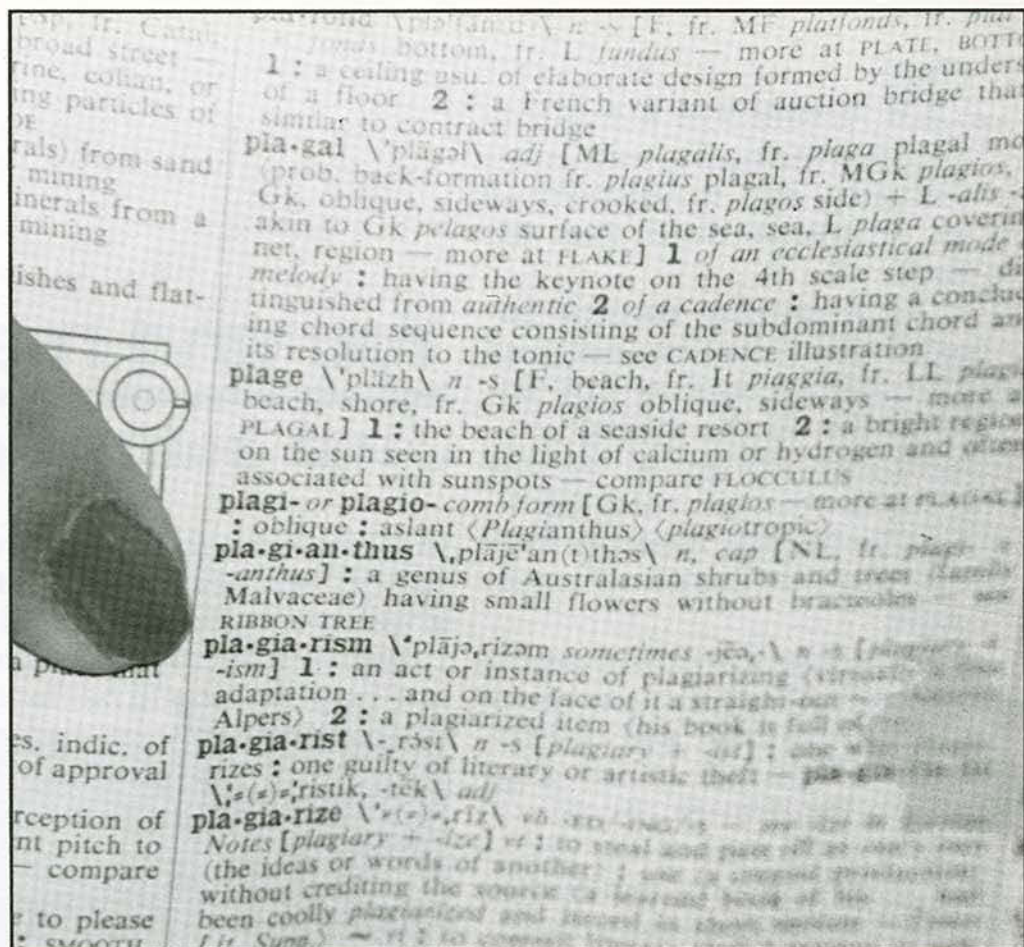 broad street —
rine, eolian, or
ing particles of
rals) from sand
mining
inerals from a
mining
ishes and flat-
a
es. indic. of
of approval
rception of
nt pitch to
— compare
e to please
: SMOOTH
n [F, fr. MF platfonds, fr.
bottom, fr. L fundus — more at PLATE, BOTTO
1 : a ceiling usu. of elaborate design formed by the unders
of a floor 2 : a French variant of auction bridge that
similar to contract bridge
pla·gal \'plāgəl\ adj [ML plagalis, fr. plaga plagal mo
(prob. back-formation fr. plagius plagal, fr. MGk plagios,
Gk, oblique, sideways, crooked, fr. plagos side) + L -alis -a
akin to Gk pelagos surface of the sea, sea, L plaga coverin
net, region — more at FLAKE] 1 of an ecclesiastical mode
melody : having the keynote on the 4th scale step — di
tinguished from authentic 2 of a cadence : having a conclud
ing chord sequence consisting of the subdominant chord an
its resolution to the tonic — see CADENCE illustration
plage \'pläzh\ n -s [F, beach, fr. It piaggia, fr. LL plagi
beach, shore, fr. Gk plagios oblique, sideways — more a
PLAGAL] 1 : the beach of a seaside resort 2 : a bright region
on the sun seen in the light of calcium or hydrogen and often
associated with sunspots — compare FLOCCULUS
plagi- or plagio- comb form [Gk, fr. plagios — more at PLAGAL]
: oblique : aslant ⟨Plagianthus⟩ ⟨plagiotropic⟩
pla·gi·an·thus \ˌplājē'an(t)thəs\ n, cap [NL, fr. plagi- +
-anthus] : a genus of Australasian shrubs and trees (family
Malvaceae) having small flowers without bracteoles — see
RIBBON TREE
pla·gia·rism \'plājəˌrizəm sometimes -jēə,-\ n -s [plagiary +
-ism] 1 : an act or instance of plagiarizing
adaptation . . . and on the face of it a straight-out ~
Alpers⟩ 2 : a plagiarized item ⟨his book is full of
pla·gia·rist \-ˌrəst\ n -s [plagiary + -ist] : one who
rizes : one guilty of literary or artistic theft —
\ˌ≠(≠)≠ˌristik, -tēk\ adj
pla·gia·rize \'≠(≠)≠ˌrīz\ vb — see -ize in
Notes [plagiary + -ize] vt : to steal and pass off as one's own
(the ideas or words of another) : use
without crediting the source
been coolly plagiarized and